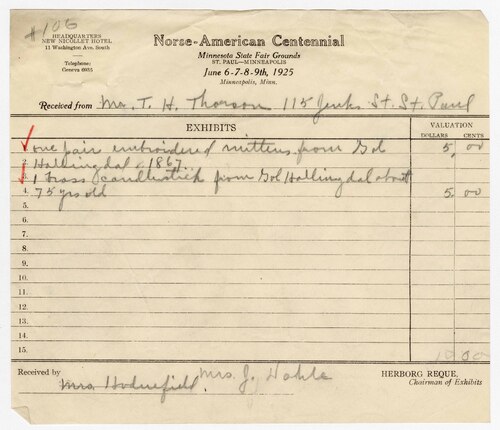 #106
HEADQUARTERS
NEW NICOLLET HOTEL
11 Washington Ave. South
Telephone:
Geneva 6055
Norse-American Centennial
Minnesota State Fair Grounds
ST. PAUL—MINNEAPOLIS
June 6-7-8-9th, 1925
Minneapolis, Minn.
Received from Mr. T. H. Thorson 115 Jenks St. St. Paul
EXHIBITS
VALUATION
DOLLARS CENTS
1. one pair embroidered mittens from Gol 5,00
2. Hallingdal - 1867.
3. 1 brass candlestick from Gol Hallingdal about
4. 75 yrs old 5.00
5.
6.
7.
8.
9.
10.
11.
12.
13.
14.
15.
10 00
Received by Mrs. J.
Mrs.
HERBORG REQUE,
Chairman of Exhibits